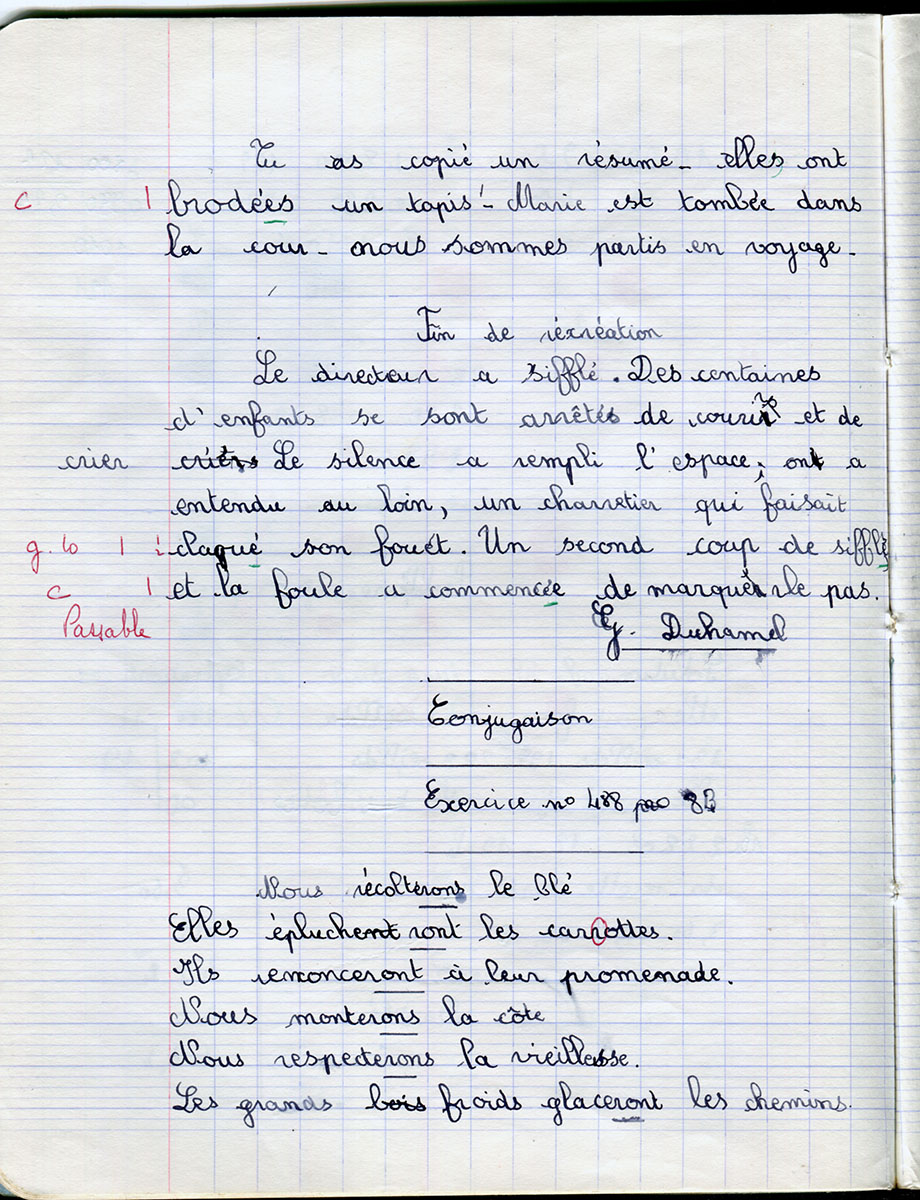 Tu as copié un résumé - elles ont
c 1 brodées un tapis - Marie est tombée dans
la cour - nous sommes partis en voyage -
Fin de récréation
Le directeur a sifflé. Des centaines
d'enfants se sont arrêtés de courir et de
crier criers Le silence a rempli l'espace; ont a
entendu au loin, un charretier qui faisait
g. to 1 claqué son fouet. Un second coup de sifflé
c 1 et la foule a commencée de marquer le pas.
Passable
G. Duhamel
Conjugaison
Exercice no 488
Nous récolterons le blé
Elles épluchent ront les carrottes.
Ils renonceront à leur promenade.
Nous monterons la côte
Nous respecterons la vieillesse.
Les grands bois froids glaceront les chemins.